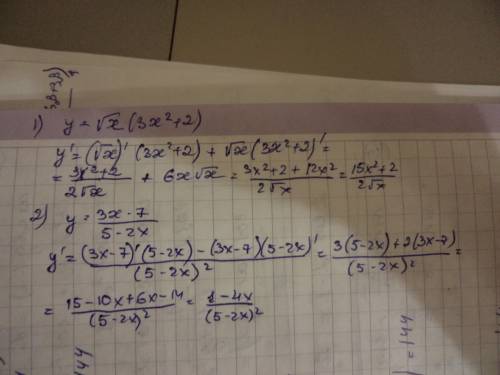 1) y = √x (3x²+2)
y' = (√x)' (3x²+2) + √x (3x²+2)' =
= (3x²+2)/(2√x) + 6x√x = (3x²+2+12x²)/(2√x) = (15x²+2)/(2√x)
2) y = (3x-7)/(5-2x)
y' = ((3x-7)'(5-2x) - (3x-7)(5-2x)')/(5-2x)² = (3(5-2x)+2(3x-7))/(5-2x)² =
= (15-10x+6x-14)/(5-2x)² = (1-4x)/(5-2x)²
144
=144